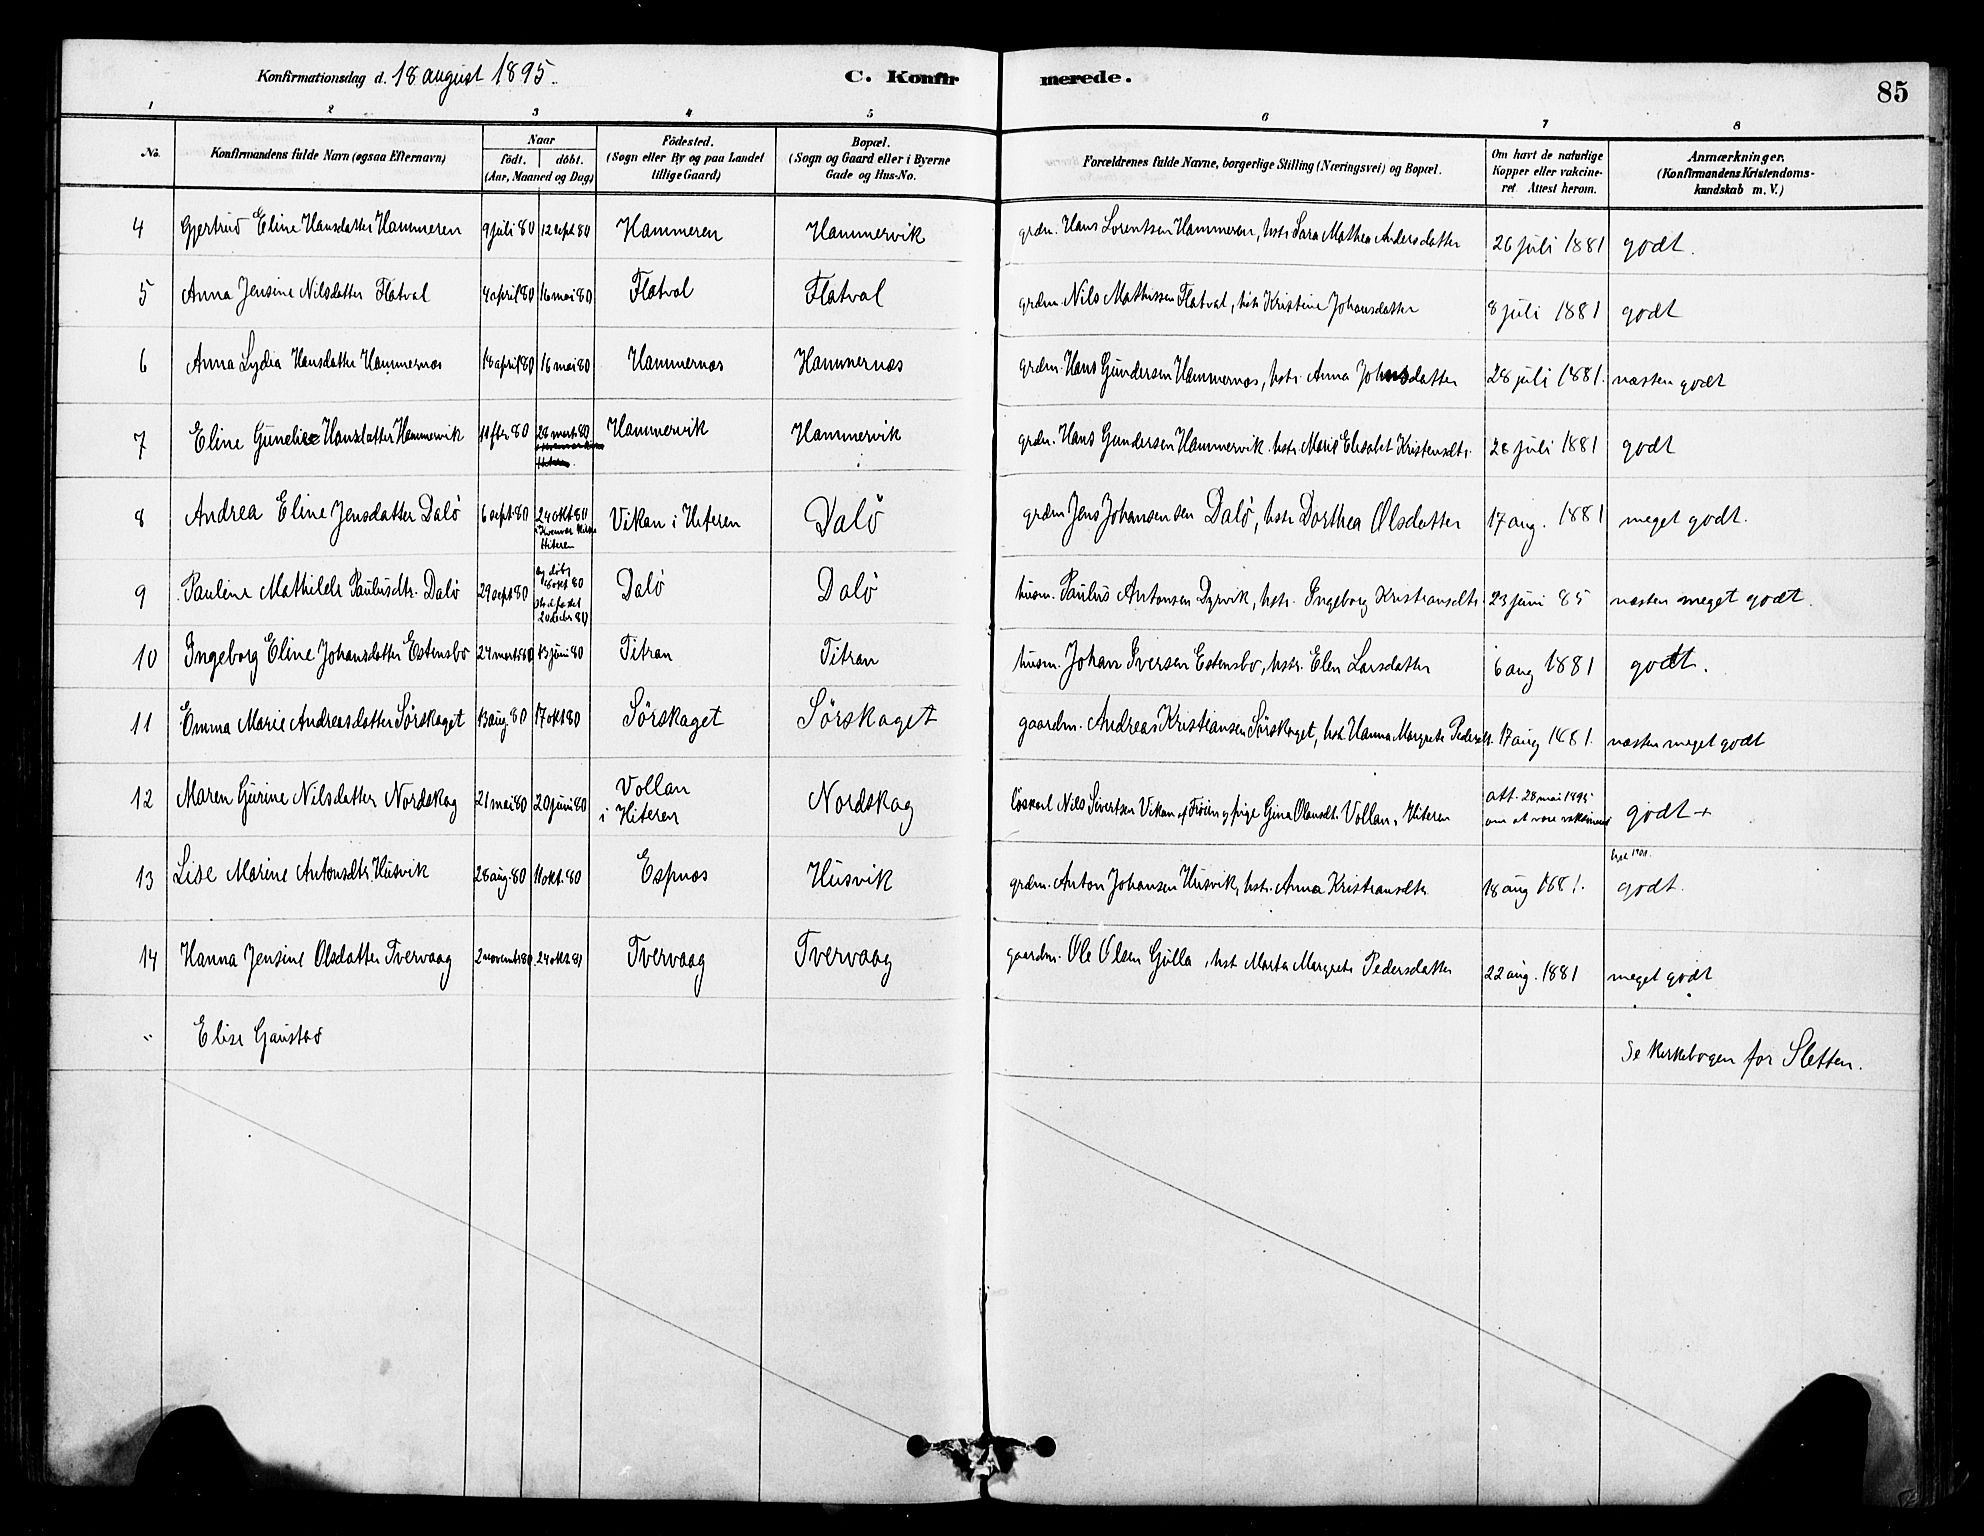 Konfirmationsdag d. 18 august 1895.
C. Konfirmerede.
85
1 2 3 4 5 6 7 8
No.
Konfirmandens fulde Navn (ogsaa Efternavn)
Naar
födt. döbt.
(Aar, Maaned og Dag)
Födested.
(Sogn eller By og paa Landet
tillige Gaard)
Bopæl.
(Sogn og Gaard eller i Byerne
Gade og Hus-No.
Forældrenes fulde Navne, borgerlige Stilling (Næringsvei) og Bopæl.
Om havt de naturlige
Kopper eller vakcine-
ret Attest herom.
Anmærkninger.
(Konfirmandens Kristendoms-
kundskab m. V.)
4 Gjertrud Eline Hansdatter Hammeren 9 juli 80 12 sept 80 Hammeren Hammervik grdm. Hans Lorentsen Hammeren, hstr Sara Mathea Andersdatter 26 juli 1881 godt.
5 Anna Jensine Nilsdatter Flatval 4 april 80 16 mai 80 Flatval Flatval grdm. Nils Mathissen Flatval, hstr Kristine Johansdatter 8 juli 1881 godt
6 Anna Lydia Hansdatter Hammernes 18 april 80 16 mai 80 Hammernes Hammernes grdm. Hans Gundersen Hammernes, hstr. Anna Johnsdatter 28 juli 1881. næsten godt
7 Eline Hansdatter Hammervik 11 fbr 80 28 marts 80 Hammervik Hammervik grdm. Hans Gundersen Hammervik hstr. Marie Elisabet Kristensdtr. 28 juli 1881 godt
8 Andrea Eline Jensdatter Dalö 6 sept 80 24 okt 80 i Kvenvær Kirke Hiteren Vikan i Hiteren Dalö grdm Jens Johansen Dalö, hstr Dorthea Olsdatter 17 aug. 1881 meget godt.
9 Pauline Mathilde Paulusdtr. Dalö 29 sept 80 20 decbr 80 Dalö Dalö husm. Paulus Antonsen Dyrvik, hstr. Ingeborg Kristiansdtr. 23 juni 85 næsten meget godt.
10 Ingeborg Eline Johansdatter Estensbo 24 marts 80 13 juni 80 Titran Titran husm. Johan Iversen Estensbo, hstr. Elen Larsdatter 6 aug 1881 godt.
11 Emma Marie Andreasdatter Sörskaget 13 aug 80 17 okt 80 Sörskaget Sörskaget gaardm. Andreas Kristiansen Sörskaget, hst Hanna Margrete Pedersdt. 17 aug 1881. næsten meget godt
12 Maren Gurine Nilsdatter Nordskag 21 mai 80 20 juni 80 Vollan i Hiteren Nordskag löskarl Nils Sivertsen Vikan af Fröien og pige Gina Olausdt. Vollan, Hiteren att. 28 mai 1895 om at være vaksineret godt +
13 Lise Marine Antonsdtr. Husvik 28 aug. 80 11 okt. 80 Espnes Husvik grdm. Anton Johansen Husvik, hstr. Anna Kristiansdtr 18 aug 1881. godt.
14 Hanna Jensine Olsdatter Tvervaag 2 novembr 80 24 okt. 81 Tvervaag Tvervaag gaardm. Ole Olsen Gulla, hst Marta Margrete Pedersdatter 22 aug. 1881 meget godt
" Elise Gaustad Se Kirkebogen for Sletten.